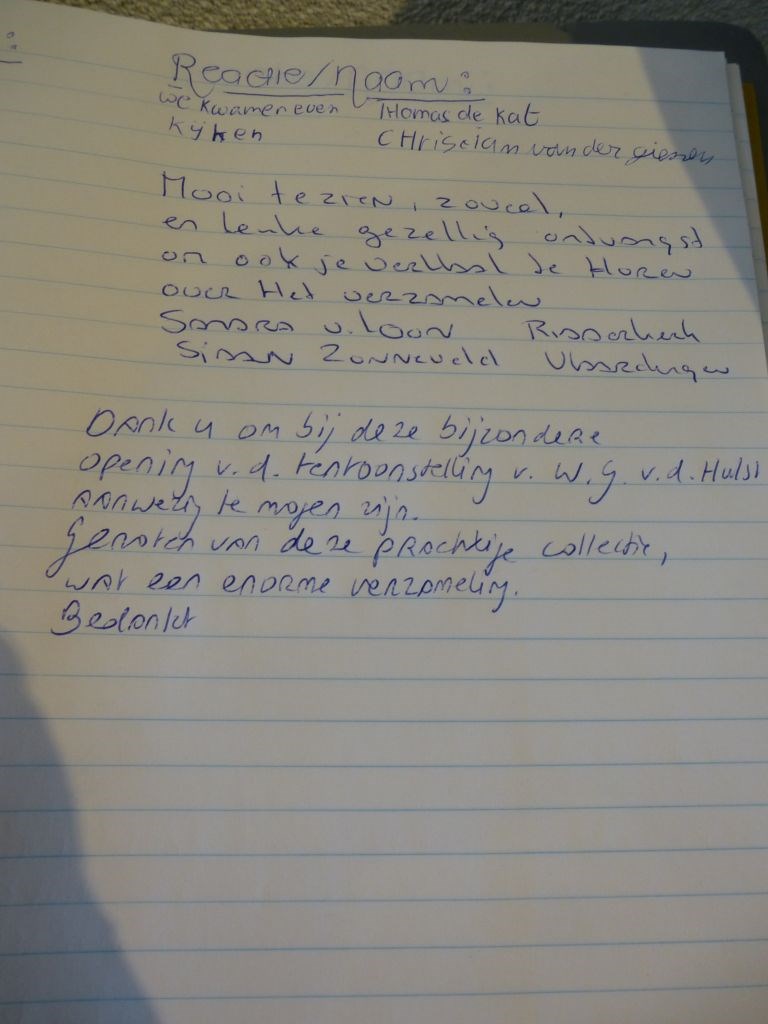 :
Reactie/Naam:
we kwamen even Thomas de Kat
kijken CHristian van der giessen
Mooi te zien, zoveel,
en leuke gezellig ontvangst
om ook je verhaal te Horen
over Het verzamelen
Sandra v. Loon Ridderkerk
Simon Zonneveld Vlaardingen
Dank u om bij deze bijzondere
opening v.d. tentoonstelling v. W.G. v.d. Hulst
aanwezig te mogen zijn.
Genoten van deze prachtige collectie,
wat een enorme verzameling.
Bedankt